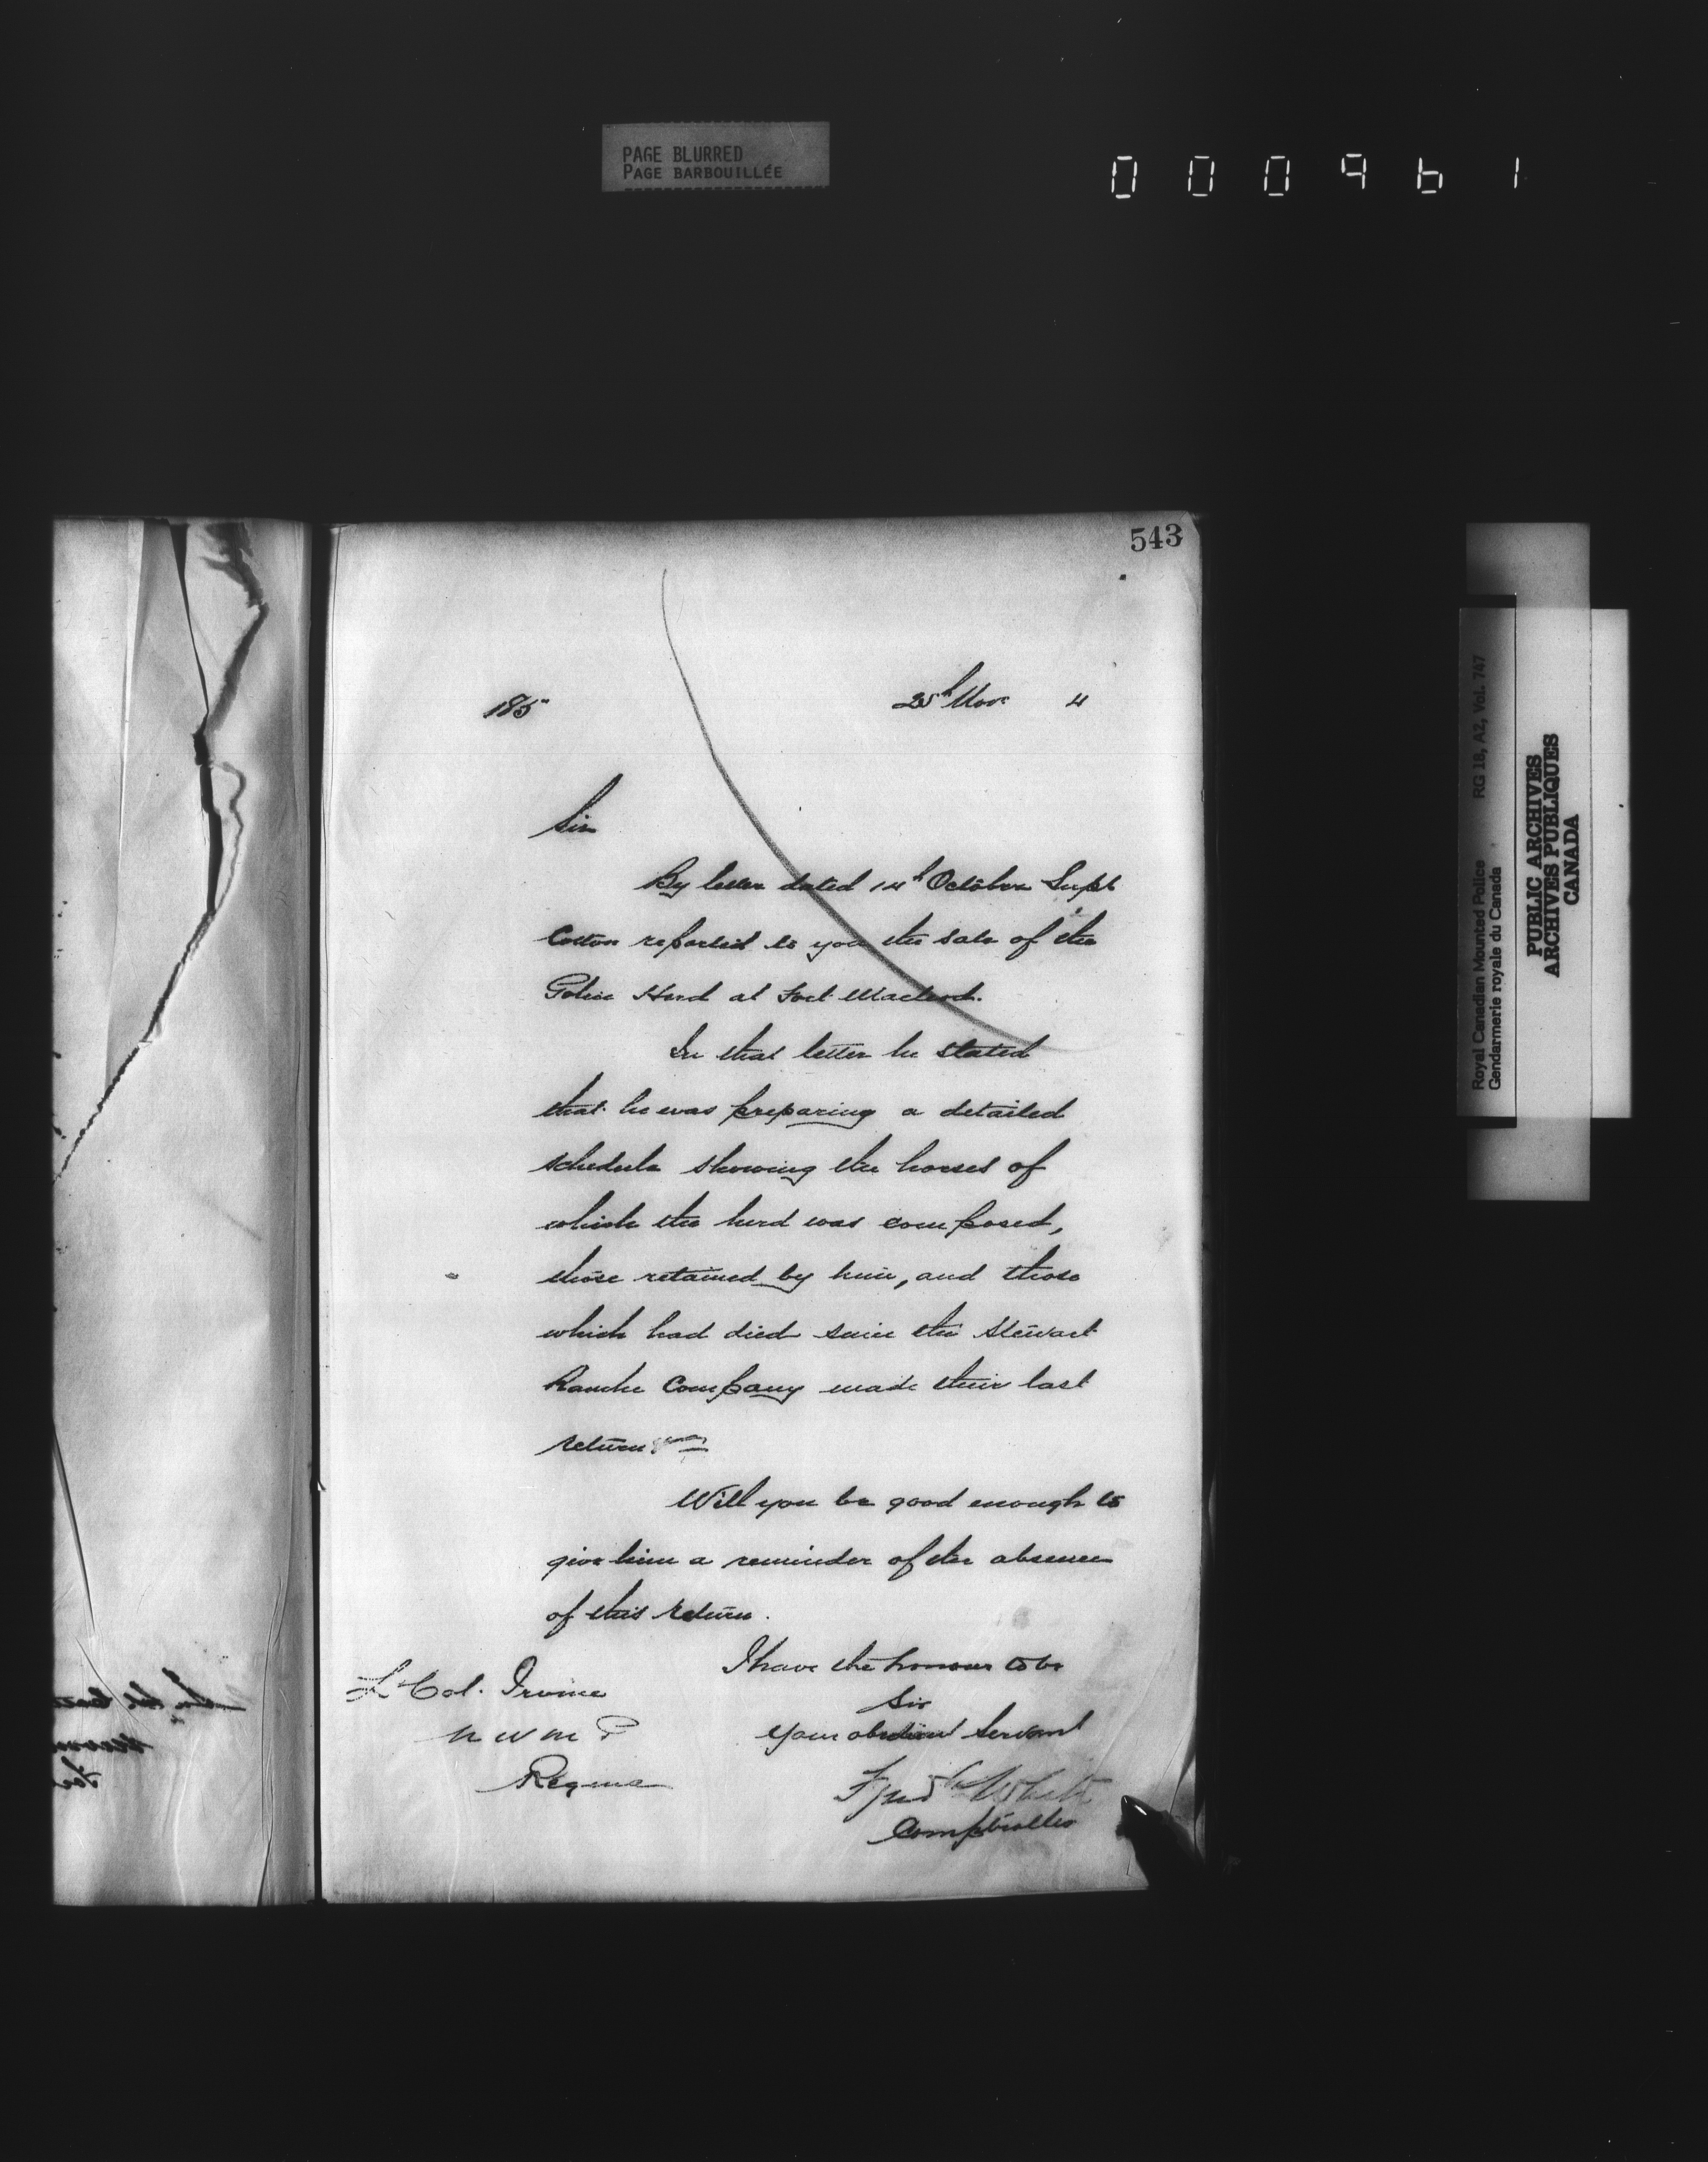 PAGE BLURRED
PAGE BARBOUILLÉE
0 0 0 9 6 1
543
185
25th Nov. 4
Sir
By letter dated 14th October Supt
Cotton reported to you the sale of the
Police Herd at Fort Macleod.
In that letter he stated
that he was preparing a detailed
schedule showing the horses of
which the herd was composed,
those retained by him, and those
which had died since the Stewart
Ranche Company made their last
return
Will you be good enough to
give him a reminder of the absence
of this return.
I have the honour to be
Sir
Your obedient Servant
Fred White
Comptroller
Lt Col. Irvine
N W M P
Regina
Royal Canadian Mounted Police RG 18, A2, Vol. 747
Gendarmerie royale du Canada
PUBLIC ARCHIVES
ARCHIVES PUBLIQUES
CANADA